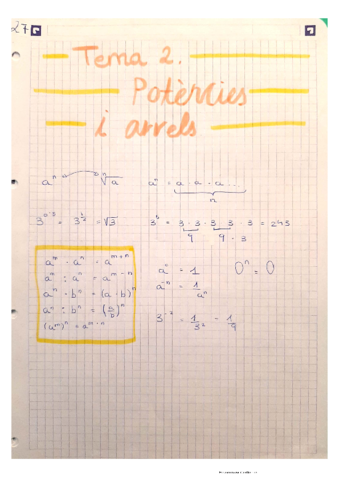 27
Tema 2.
Potències
i arrels
aⁿ ⁿ√a aⁿ = a · a · a ...
n
3^0'5 = 3^½ = √3 3⁵ = 3 · 3 · 3 · 3 · 3 = 243
9 9 · 3
aᵐ · aⁿ = aᵐ⁺ⁿ
aᵐ : aⁿ = aᵐ⁻ⁿ
aⁿ · bⁿ = (a · b)ⁿ
aⁿ : bⁿ = (a/b)ⁿ
(aᵐ)ⁿ = aᵐ·ⁿ
= 1 0ⁿ = 0
a⁻ⁿ = 1/aⁿ
3⁻² = 1/3² = 1/9